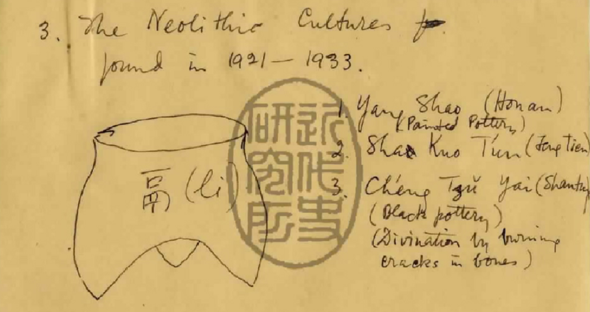 3. The Neolithic Cultures
found in 1921 — 1933.
1. Yang Shao (Honan)
(Painted Pottery)
2. Sha Kuo Tun (Feng Tien)
3. Ch'eng Tzŭ Yai (Shantung)
(Black pottery)
(Divination by burning
cracks in bones)
鬲 (li)
近代史
研究所